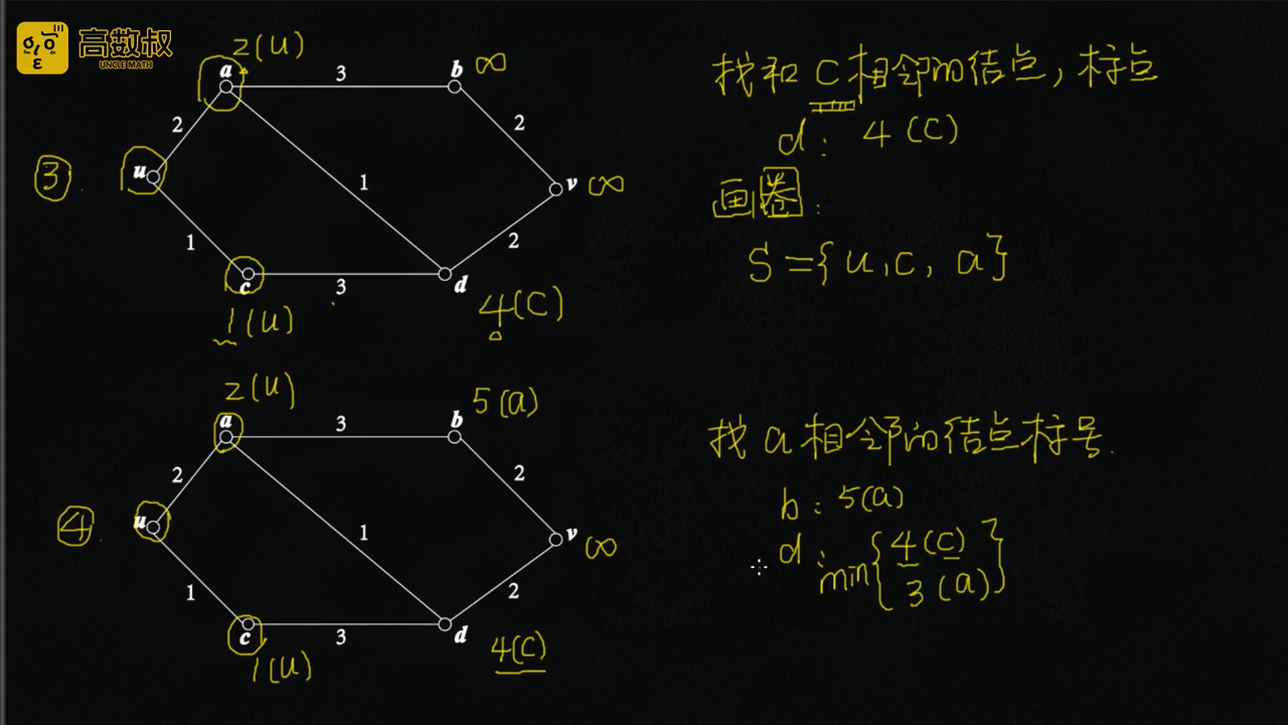 高数叔
UNCLE MATH
2(u)
a
3
b
∞
2
2
③
u
1
v
∞
1
2
c
3
d
1(u)
4(c)
找和c相邻的结点，标点
d: 4(c)
画圈:
S={u,c,a}
2(u)
5(a)
a
3
b
2
2
④
u
1
v
∞
1
2
c
3
d
1(u)
4(c)
找a相邻的结点标号.
b: 5(a)
d: min{4(c)
3(a)}